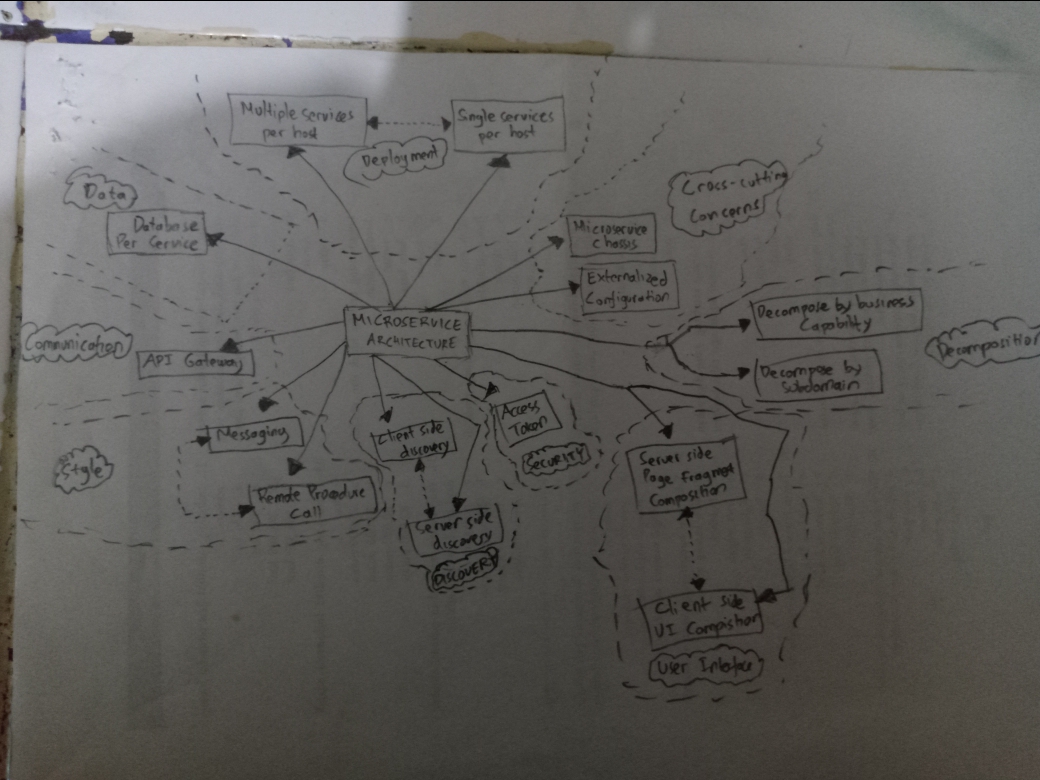 Multiple services
per host
Single services
per host
Deployment
Data
Database
Per Service
Cross-cutting
Concerns
Microservice
Chassis
Externalized
Configuration
MICROSERVICE
ARCHITECTURE
Decompose by business
Capability
Decomposition
Decompose by
Subdomain
Communication
API Gateway
Messaging
Style
Remote Procedure
Call
Client side
discovery
Server side
discovery
DISCOVERY
Access
Token
SECURITY
Server side
Page Fragment
Composition
Client side
UI Compistion
User Interface